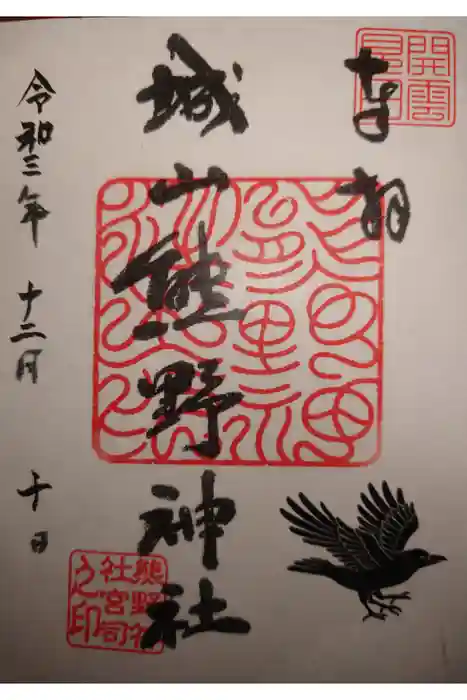 開雲見日
奉拝
城山熊野神社
令和三年 十二月 十日
熊野神社宮司之印